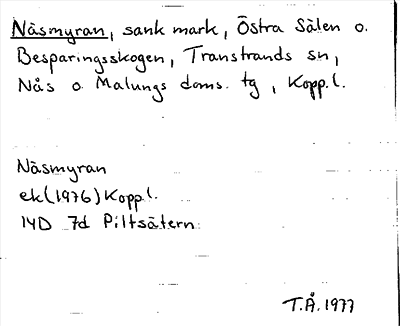 Näsmyran, sank mark, Östra Sälen o.
Besparingsskogen, Transtrands sn,
Nås o Malungs doms. tg, Kopp.l.
Näsmyran
ek (1976) Kopp l.
14D 7d Piltsätern
T.Å. 1977